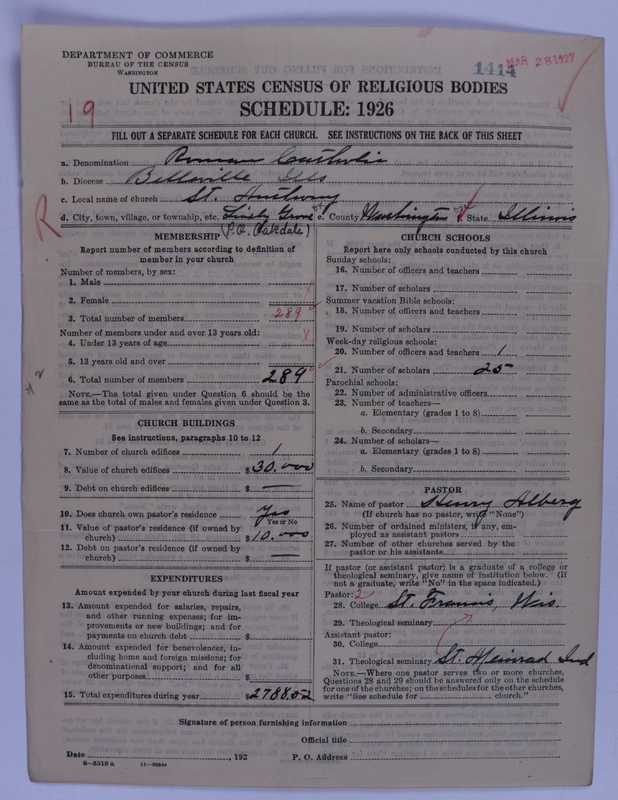 DEPARTMENT OF COMMERCE
BUREAU OF THE CENSUS
WASHINGTON
1414
MAR 28 1927
UNITED STATES CENSUS OF RELIGIOUS BODIES
SCHEDULE: 1926
19
FILL OUT A SEPARATE SCHEDULE FOR EACH CHURCH. SEE INSTRUCTIONS ON THE BACK OF THIS SHEET
a. Denomination Roman Catholic
b. Diocese Belleville Ills
c. Local name of church St. Anthony
d. City, town, village, or township, etc. Lively Grove e. County Washington f. State Illinois
(P.O. Oakdale)
R
MEMBERSHIP
Report number of members according to definition of member in your church
Number of members, by sex:
1. Male
2. Female
3. Total number of members 289
Number of members under and over 13 years old:
4. Under 13 years of age
5. 13 years old and over
6. Total number of members 289
NOTE.—The total given under Question 6 should be the same as the total of males and females given under Question 3.
CHURCH BUILDINGS
See instructions, paragraphs 10 to 12
7. Number of church edifices 1
8. Value of church edifices $30.000
9. Debt on church edifices $ —
10. Does church own pastor's residence Yes
Yes or No
11. Value of pastor's residence (if owned by church) $10.000
12. Debt on pastor's residence (if owned by church) $ —
EXPENDITURES
Amount expended by your church during last fiscal year
13. Amount expended for salaries, repairs, and other running expenses; for improvements or new buildings; and for payments on church debt $
14. Amount expended for benevolences, including home and foreign missions; for denominational support; and for all other purposes $
15. Total expenditures during year $2788.02
CHURCH SCHOOLS
Report here only schools conducted by this church
Sunday schools:
16. Number of officers and teachers
17. Number of scholars
Summer vacation Bible schools:
18. Number of officers and teachers
19. Number of scholars
Week-day religious schools:
20. Number of officers and teachers 1
21. Number of scholars 25
Parochial schools:
22. Number of administrative officers
23. Number of teachers—
a. Elementary (grades 1 to 8)
b. Secondary
24. Number of scholars—
a. Elementary (grades 1 to 8)
b. Secondary
PASTOR
25. Name of pastor Henry Alberg
(If church has no pastor, write "None")
26. Number of ordained ministers, if any, employed as assistant pastors
27. Number of other churches served by the pastor or his assistants
If pastor (or assistant pastor) is a graduate of a college or theological seminary, give name of institution below. (If not a graduate, write "No" in the space indicated.)
Pastor: 2
28. College St. Francis, Wis.
29. Theological seminary
Assistant pastor:
30. College
31. Theological seminary St. Meinrad Ind
NOTE.—Where one pastor serves two or more churches, Questions 28 and 29 should be answered only on the schedule for one of the churches; on the schedules for the other churches, write "See schedule for church."
Signature of person furnishing information
Official title
Date , 192 P. O. Address
8—5518a 11—9058